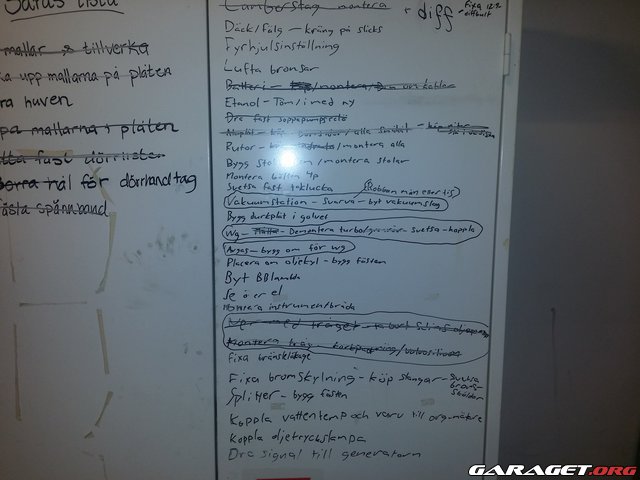 Saras lista
mallar tillverka
ka upp mallarna på plåten
ra huven
pa mallarna i plåten
fast dörrlister
borra hål för dörrhandtag
fästa spännband
Camberstag montera
+ diff - fixa
Däck/Fälg - kräng på slicks
Fyrhjulsinställning
Lufta bromsar
Batteri - /montera/ om kablar
Etanol - Töm/i med ny
Dra fast
Rutor - /montera alla
Bygg /montera stolar
Montera bälten 4p
Svetsa fast taklucka
Vakuumstation - svarva - byt vakuumslag
Bygg durkplåt i golvet
Wg - Demontera turbo/grenrör - svetsa - koppla
Avgas - bygg om för wg
Placera om oljekyl - bygg fästen
Byt BBlambda
Se över el
Montera instrument/bräda
montera tråg -
fixa bränsleläckage
Fixa bromskylning - köp slangar - svetsa bromssköldar
Splitter - bygg fästen
Koppla vattentemp och varv till org. mätare
Koppla oljetryckslampa
Dra signal till generatorn
GARAGET.ORG